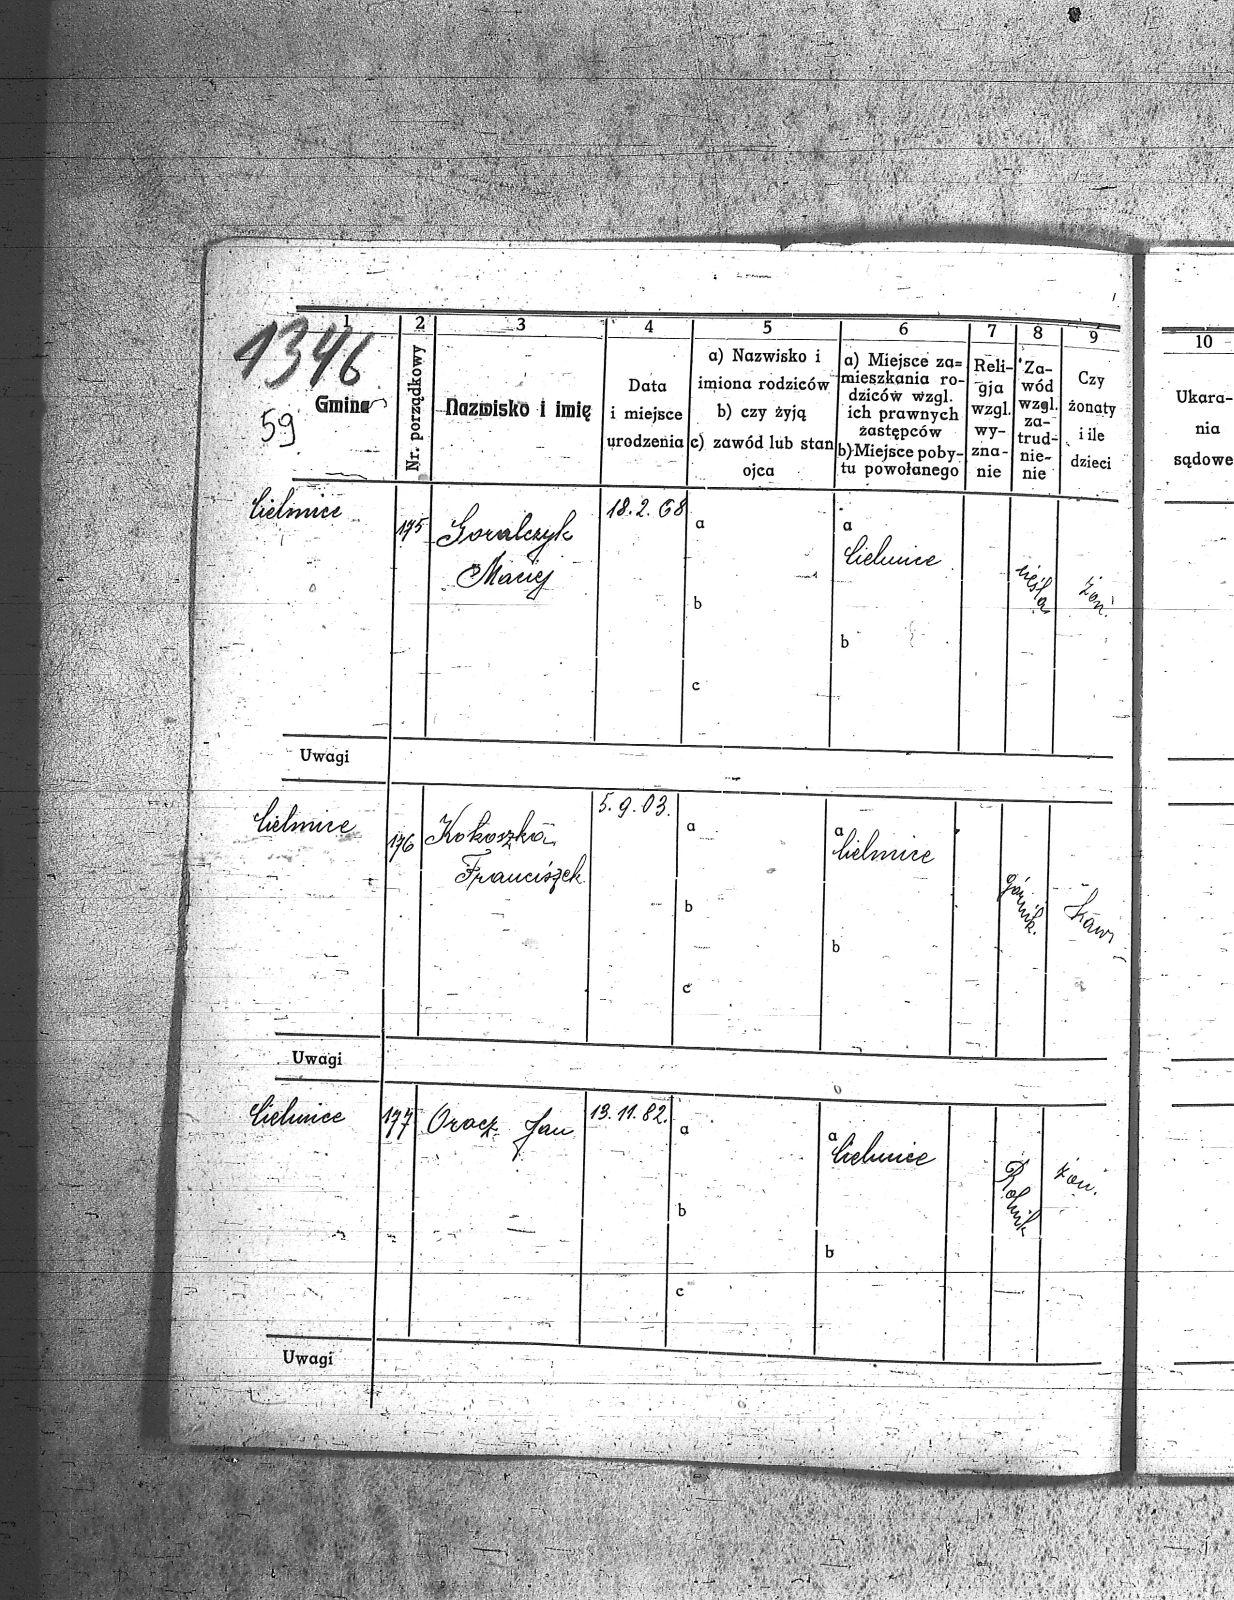 1346
59
1 2 3 4 5 6 7 8 9 10
Gmina
Nr. porządkowy
Nazwisko i imię
Data
i miejsce
urodzenia
a) Nazwisko i
imiona rodziców
b) czy żyją
c) zawód lub stan
ojca
a) Miejsce za=
mieszkania ro-
dziców wzgl.
ich prawnych
zastępców
b) Miejsce poby-
tu powołanego
Reli-
gja
wzgl.
wy-
zna-
nie
Za-
wód
wzgl.
za-
trud-
nie-
nie
Czy
żonaty
i ile
dzieci
Ukara-
nia
sądowe
Cielmice 175 Goralczyk 18.2.68 a a
Maciej Cielmice cieśla żon.
b
b
c
Uwagi
Cielmice 176 Kokoszka 5.9.03. a a
Franciszek Cielmice górnik. kaw.
b
b
c
Uwagi
Cielmice 177 Oracz Jan 13.11.82. a a
Cielmice Rolnik żon.
b
b
c
Uwagi